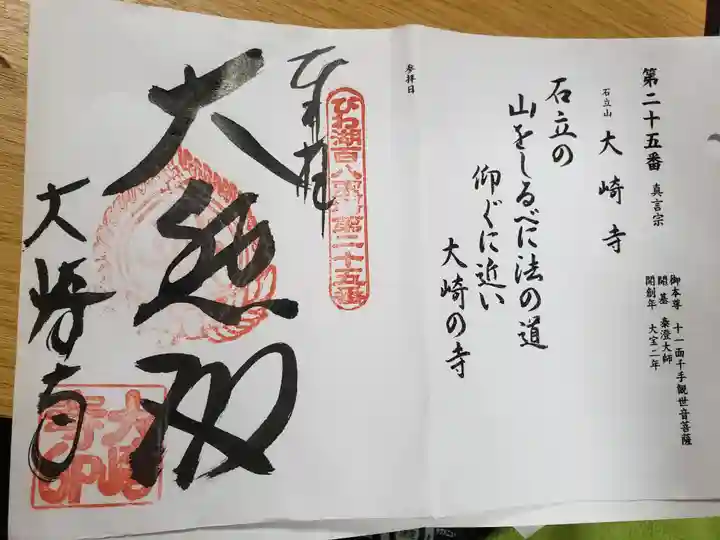 第二十五番 真言宗
石立山 大崎寺
御本尊 十一面千手観世音菩薩
開基 泰澄大師
開創年 大宝二年
石立の
山をしるべに法の道
仰ぐに近い
大崎の寺
参拝日
奉拝
びわ湖百八霊場第二十五番
大悲殿
大崎寺